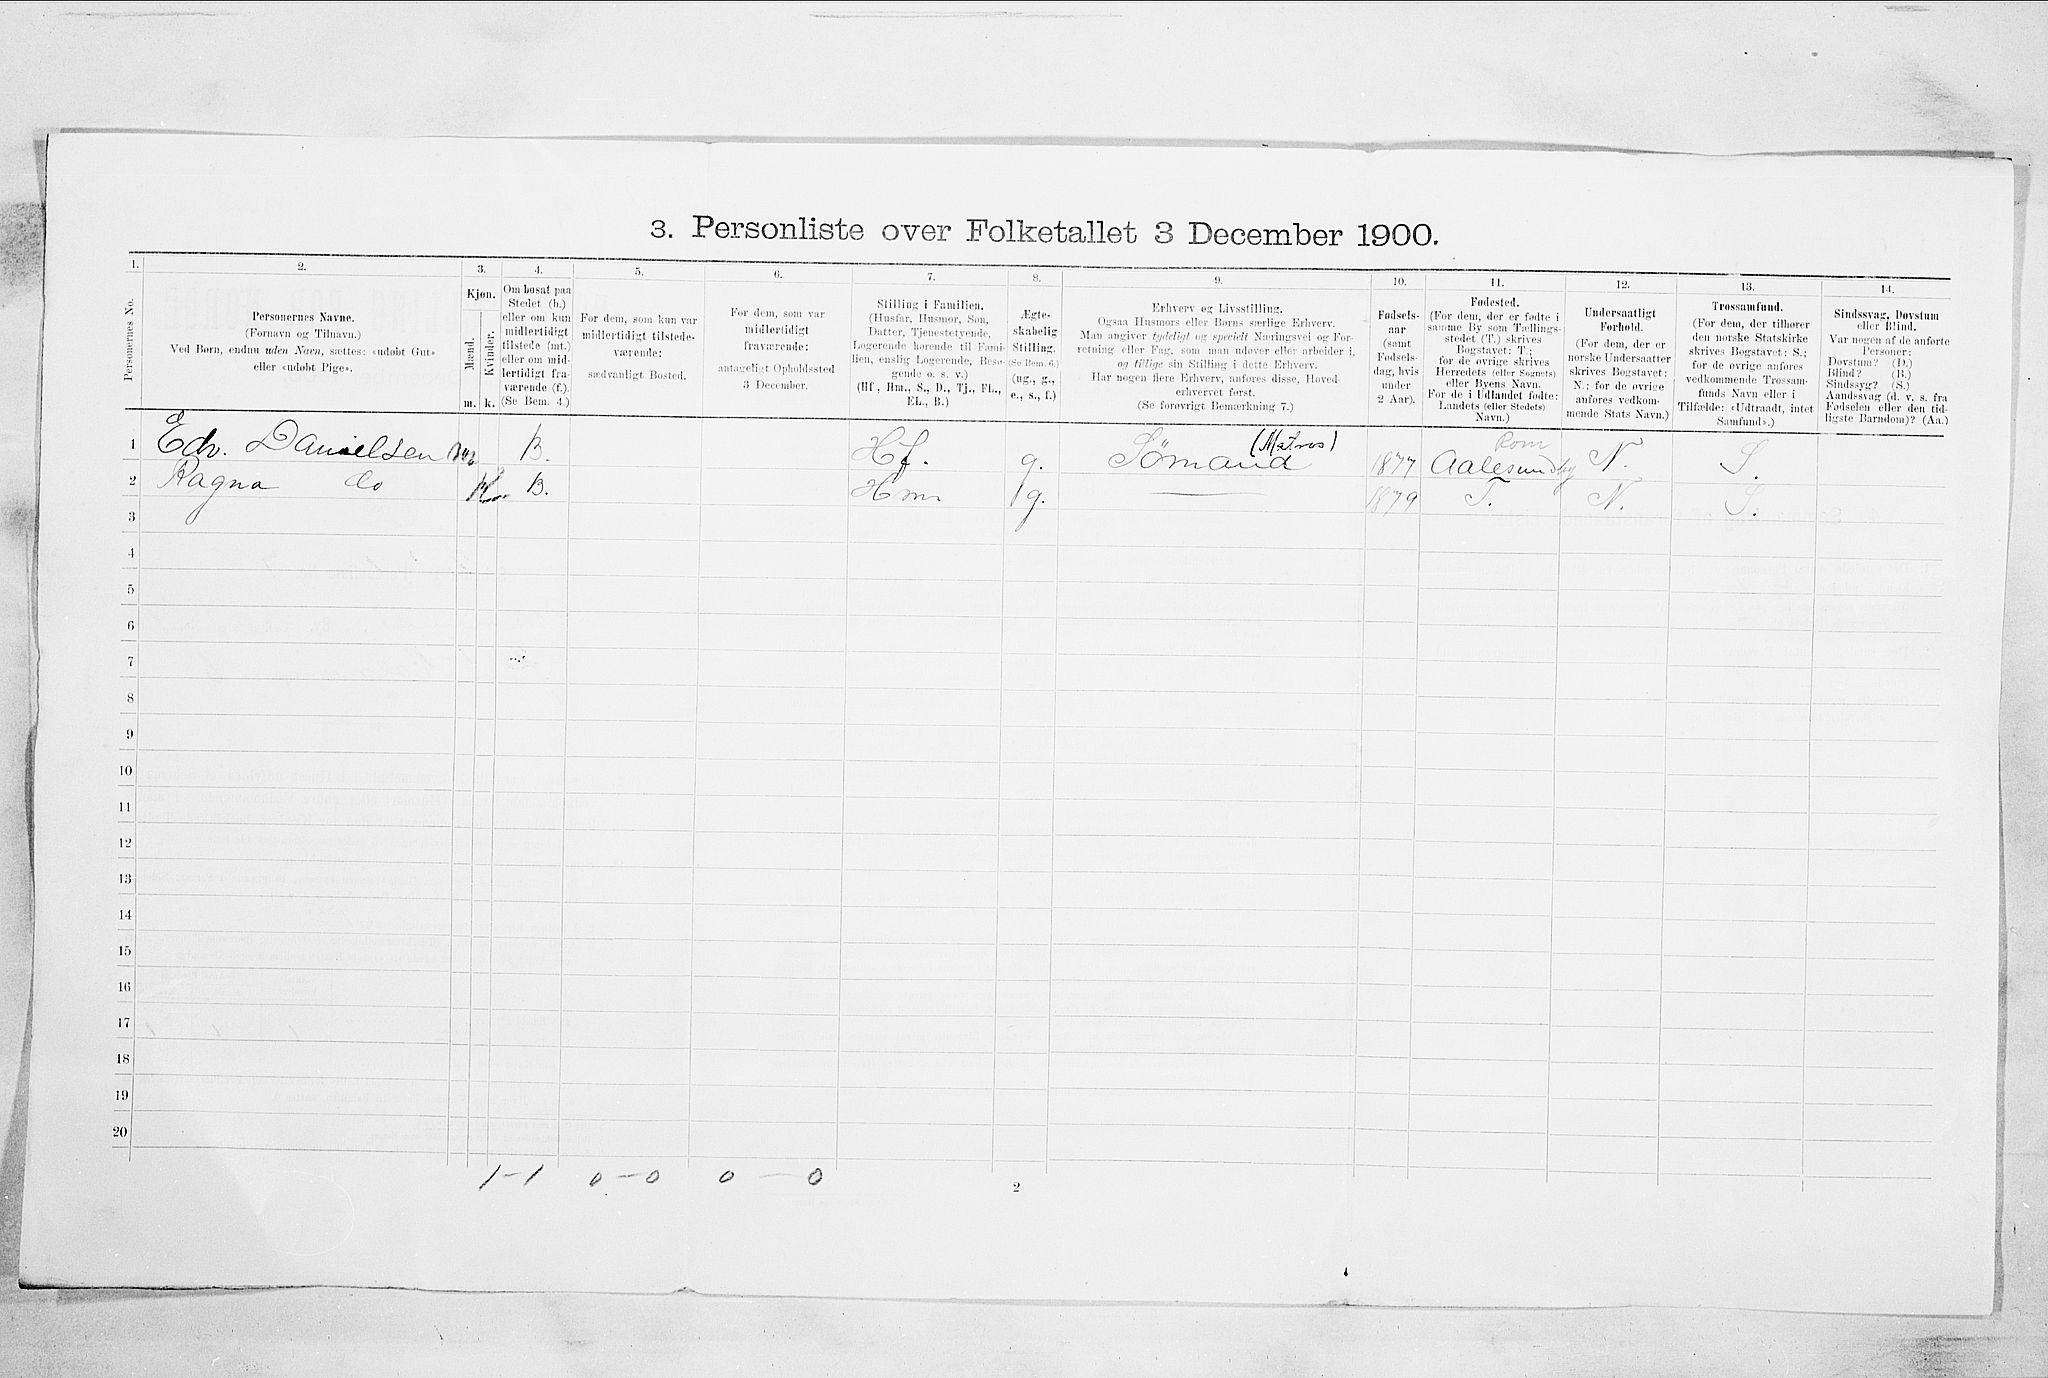 3. Personliste over Folketallet 3 December 1900.
1. 2. 3. 4. 5. 6. 7. 8. 9. 10. 11. 12. 13. 14.
Personernes No.
Personernes Navne.
(Fornavn og Tilnavn.)
Ved Børn, endnu uden Navn, sættes: «udøbt Gut»
eller «udøbt Pige».
Kjøn.
Mænd.
Kvinder.
m. k.
Om bosat paa
Stedet (b.)
eller om kun
midlertidigt
tilstede (mt.)
eller om mid-
lertidigt fra-
værende (f.).
(Se Bem. 4.)
For dem, som kun var
midlertidigt tilstede-
værende:
sædvanligt Bosted.
For dem, som var
midlertidigt
fraværende:
antageligt Opholdssted
3 December.
Stilling i Familien.
(Husfar, Husmor, Søn,
Datter, Tjenestetyende,
Logerende hørende til Fami-
lien, enslig Logerende, Besø-
gende o. s. v.)
(Hf., Hm., S., D., Tj., FL.,
EL., B.)
Ægte-
skabelig
Stilling.
(Se Bem. 6.)
(ug., g.,
e., s., f.)
Erhverv og Livsstilling.
Ogsaa Husmors eller Børns særlige Erhverv.
Man angiver tydeligt og specielt Næringsvei og For-
retning eller Fag, som man udøver eller arbeider i,
og tillige sin Stilling i dette Erhverv.
Har nogen flere Erhverv, anføres disse, Hoved-
erhvervet først.
(Se forøvrigt Bemærkning 7.)
Fødsels-
aar
(samt
Fødsels-
dag, hvis
under
2 Aar).
Fødested.
(For dem, der er fødte i
samme By som Tællings-
stedet (T.) skrives
Bogstavet: T.;
for de øvrige skrives
Herredets (eller Sognets)
eller Byens Navn.
For de i Udlandet fødte:
Landets (eller Stedets)
Navn.)
Undersaatligt
Forhold.
(For dem, der er
norske Undersaatter
skrives Bogstavet:
N.; for de øvrige
anføres vedkom-
mende Stats Navn.)
Trossamfund.
(For dem, der tilhører
den norske Statskirke
skrives Bogstavet: S.;
for de øvrige anføres
vedkommende Trossam-
funds Navn eller i
Tilfælde: «Udtraadt, intet
Samfund».)
Sindssvag, Døvstum
eller Blind.
Var nogen af de anførte
Personer:
Døvstum? (D.)
Blind? (B.)
Sindssyg? (S.)
Aandssvag (d. v. s. fra
Fødselen eller den tid-
ligste Barndom)? (Aa.)
1 Edv. Danielsen B. Hf. g. Sømand (Matros) 1877 Aalesund by N. S.
2 Ragna do K B. Hm g. 1879 T. N. S.
3
4
5
6
7
8
9
10
11
12
13
14
15
16
17
18
19
20
1-1 0-0 0-0
2